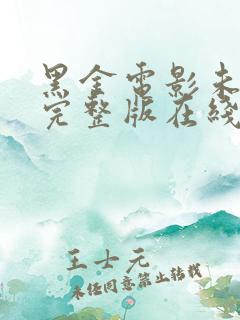 黑金電影未
完整版在綫
王士元
未经同意禁止转载